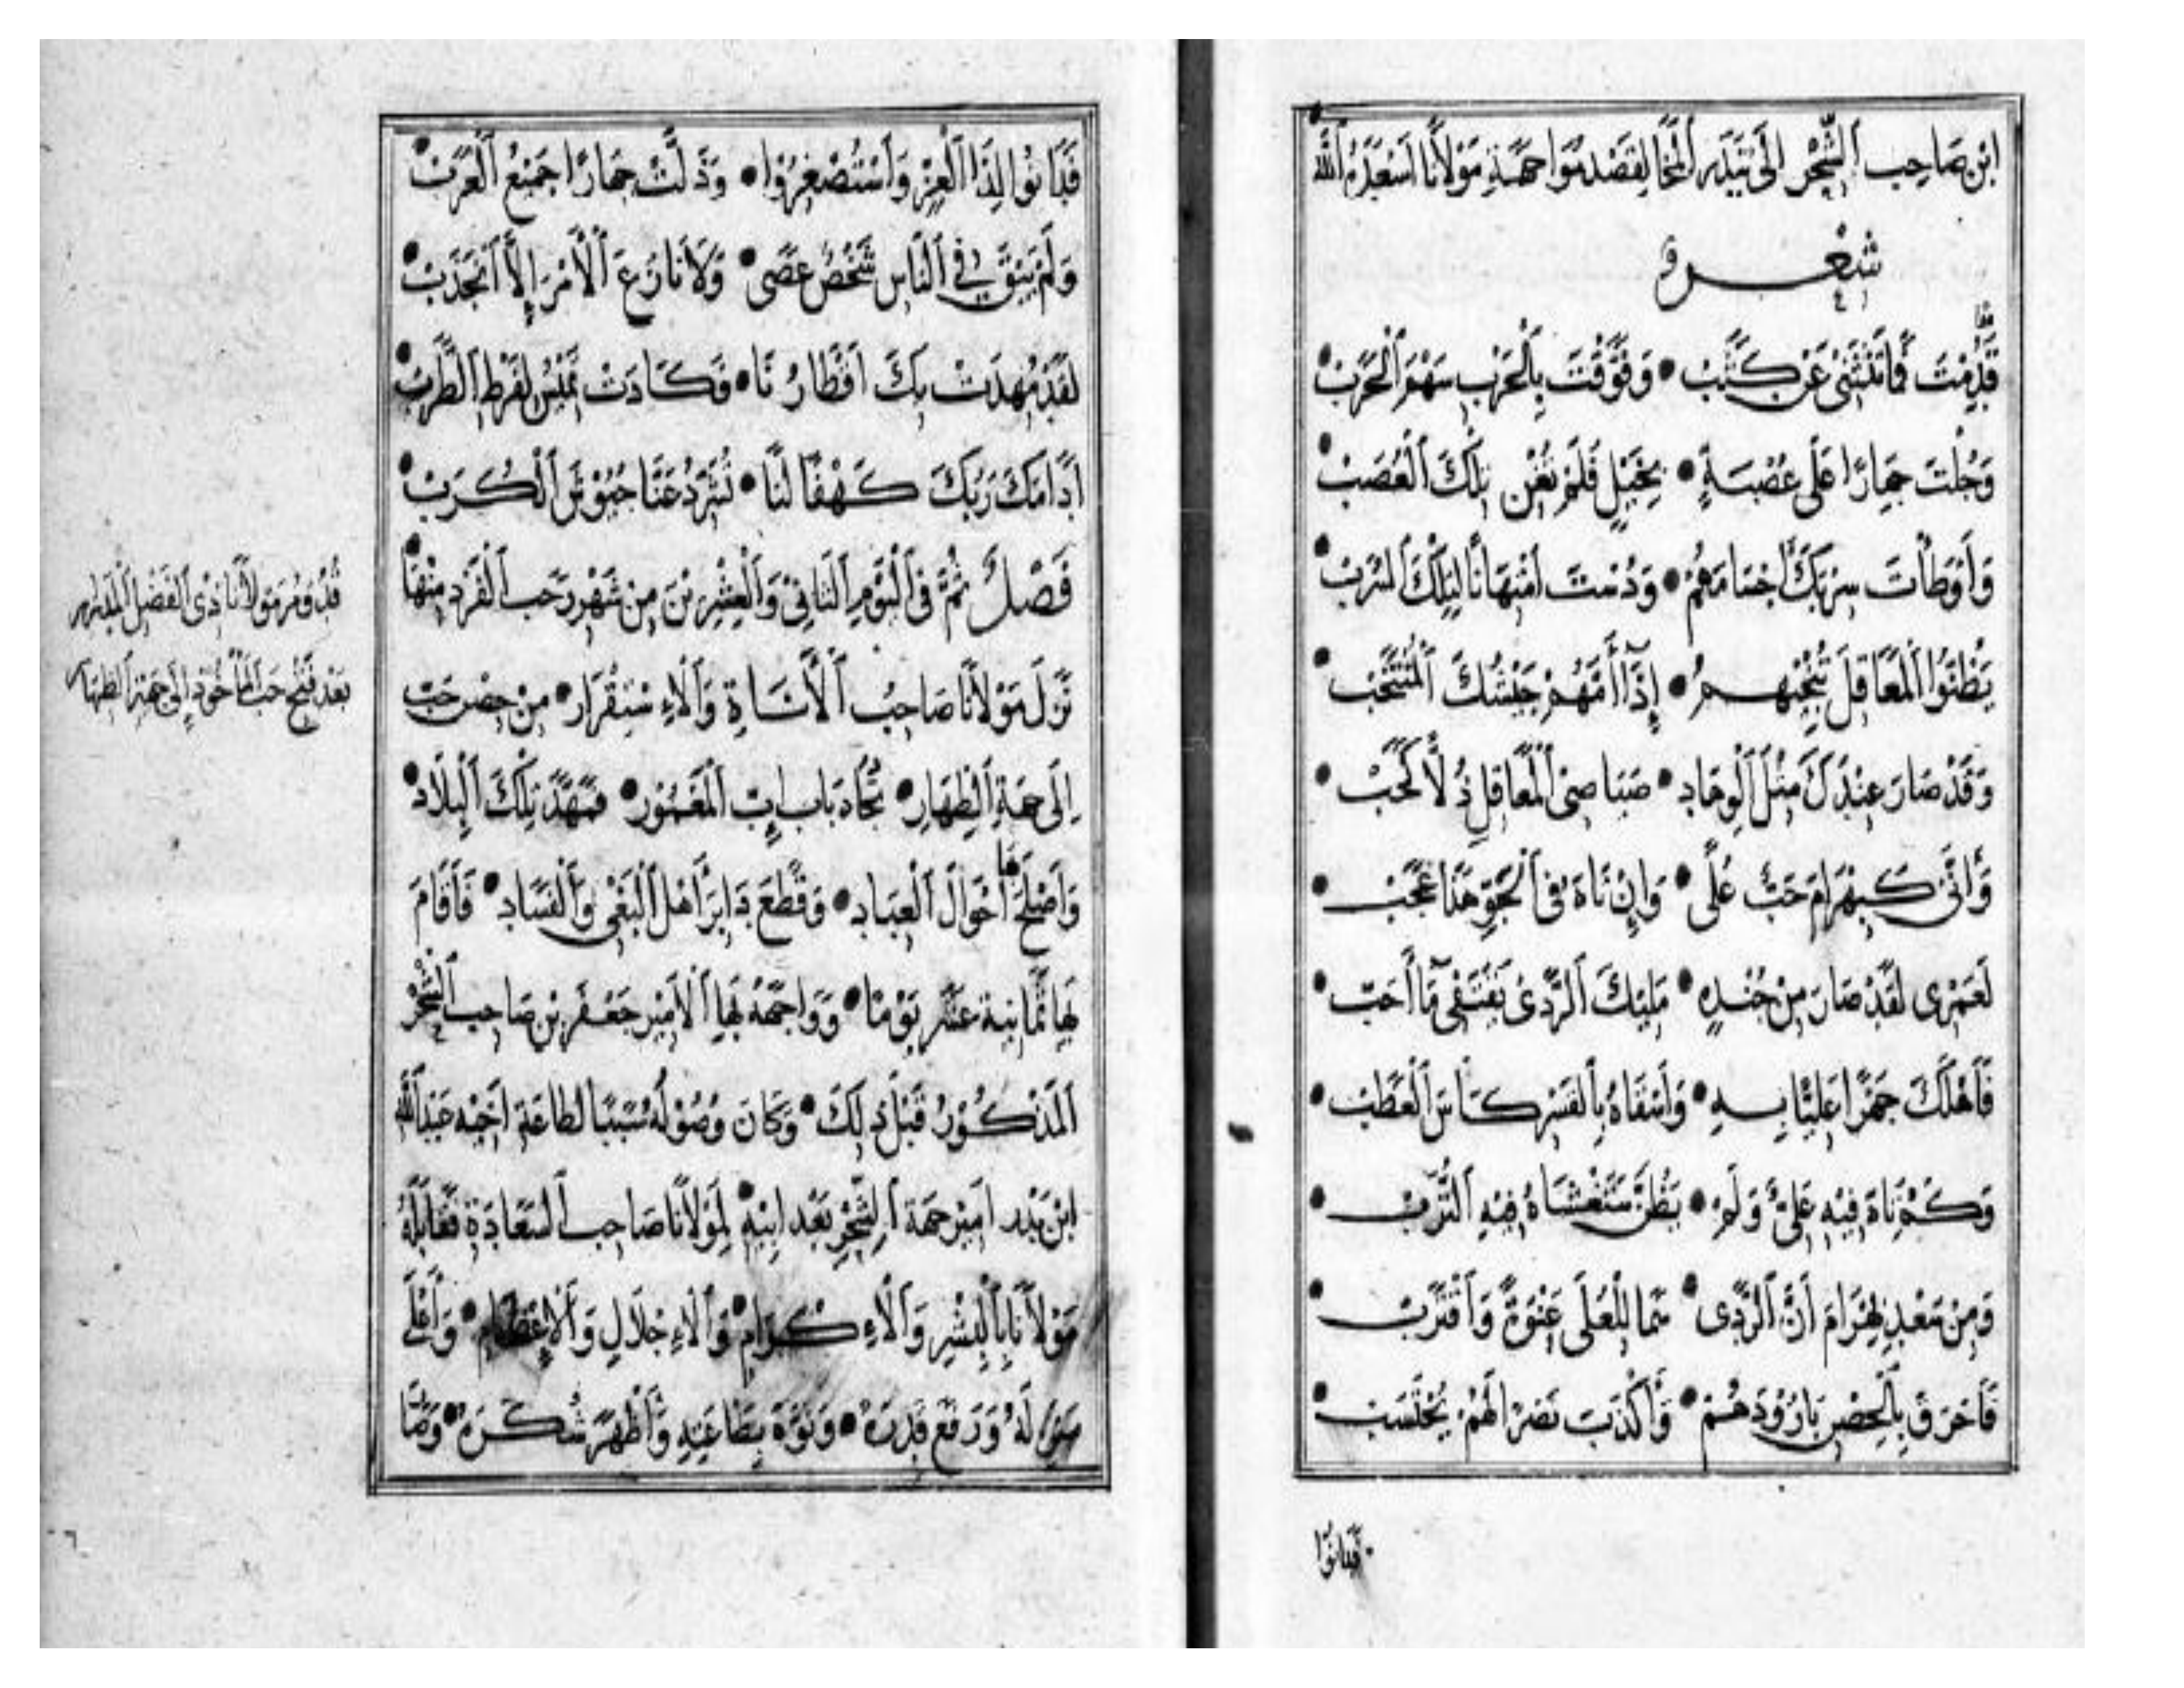 ابن صاحب الشحر الى بندر المخا لقصد مواجهة مولانا اسعده الله
شعر
قدمت فما تنثنى عن كثب • وفوقت بالحرب سهم الحرب
وجلت جهارا على عصبة • بخيل فلم تغن تلك العصب
وأوطأت سربك اجسامهم • ودست امتهانا لتلك السرب
يظنوا المعاقل تنجيهم • إذا أمهم جيشك المنتخب
وقد صار عندك مثل الوهاد • صياصى المعاقل ذلا كحب
وأنى كبهرام حب على • وإن تاه فى الجو هذا عجب
لعمرى لقد صار من جنده • مليك الردى يقتفى ما أحب
فأهلك جهرا عليا به • وأسقاه بالقسر كاس العطب
وكم تاه فيه على ولم • يظن ستغشاه فيه الترب
ومن سعد بهرام أن الردى • سما للعلى عنوة واقترب
فأحرق بالحصن بارودهم • وأكذب نصرا لهم يحتسب
فدانوا
فدانوا لذا العز واستصغروا • وذلت جهارا جميع العرب
ولم يبق في الناس شخص عصى • ولا نازع الأمر إلا انجذب
لقد مهدت بك اقطارنا • فكادت تميس لفرط الطرب
ادامك ربك كهفا لنا • تشرد عنا جيوش الكرب
فصل ثم فى اليوم الثانى والعشرين من شهر رجب الفرد منها
نزل مولانا صاحب الأناة والاستقرار • من حصن حب
الى جهة الظهار • تجاه باب إب المغمور • فمهد تلك البلاد
وأصلح بها احوال العباد • وقطع دابر أهل البغى والفساد • فأقام
بها ثمانية عشر يوما • وواجهه بها الامير جعفر بن صاحب الشحر
المذكور قبل ذلك • وكان وصوله سببا لطاعة اخيه عبد الله
ابن بدر امير جهة الشحر بعد ابيه لمولانا صاحب السعادة فقابله
مولانا بالبشر والاكرام • والاجلال والإعظام • وأعلى
منزله ورفع قدره • ونوه بطاعته وأظهر شكره •
قف قدوم مولانا ذى الفضل
بعد فتح حب المأخوذ إلى جهة الظهار